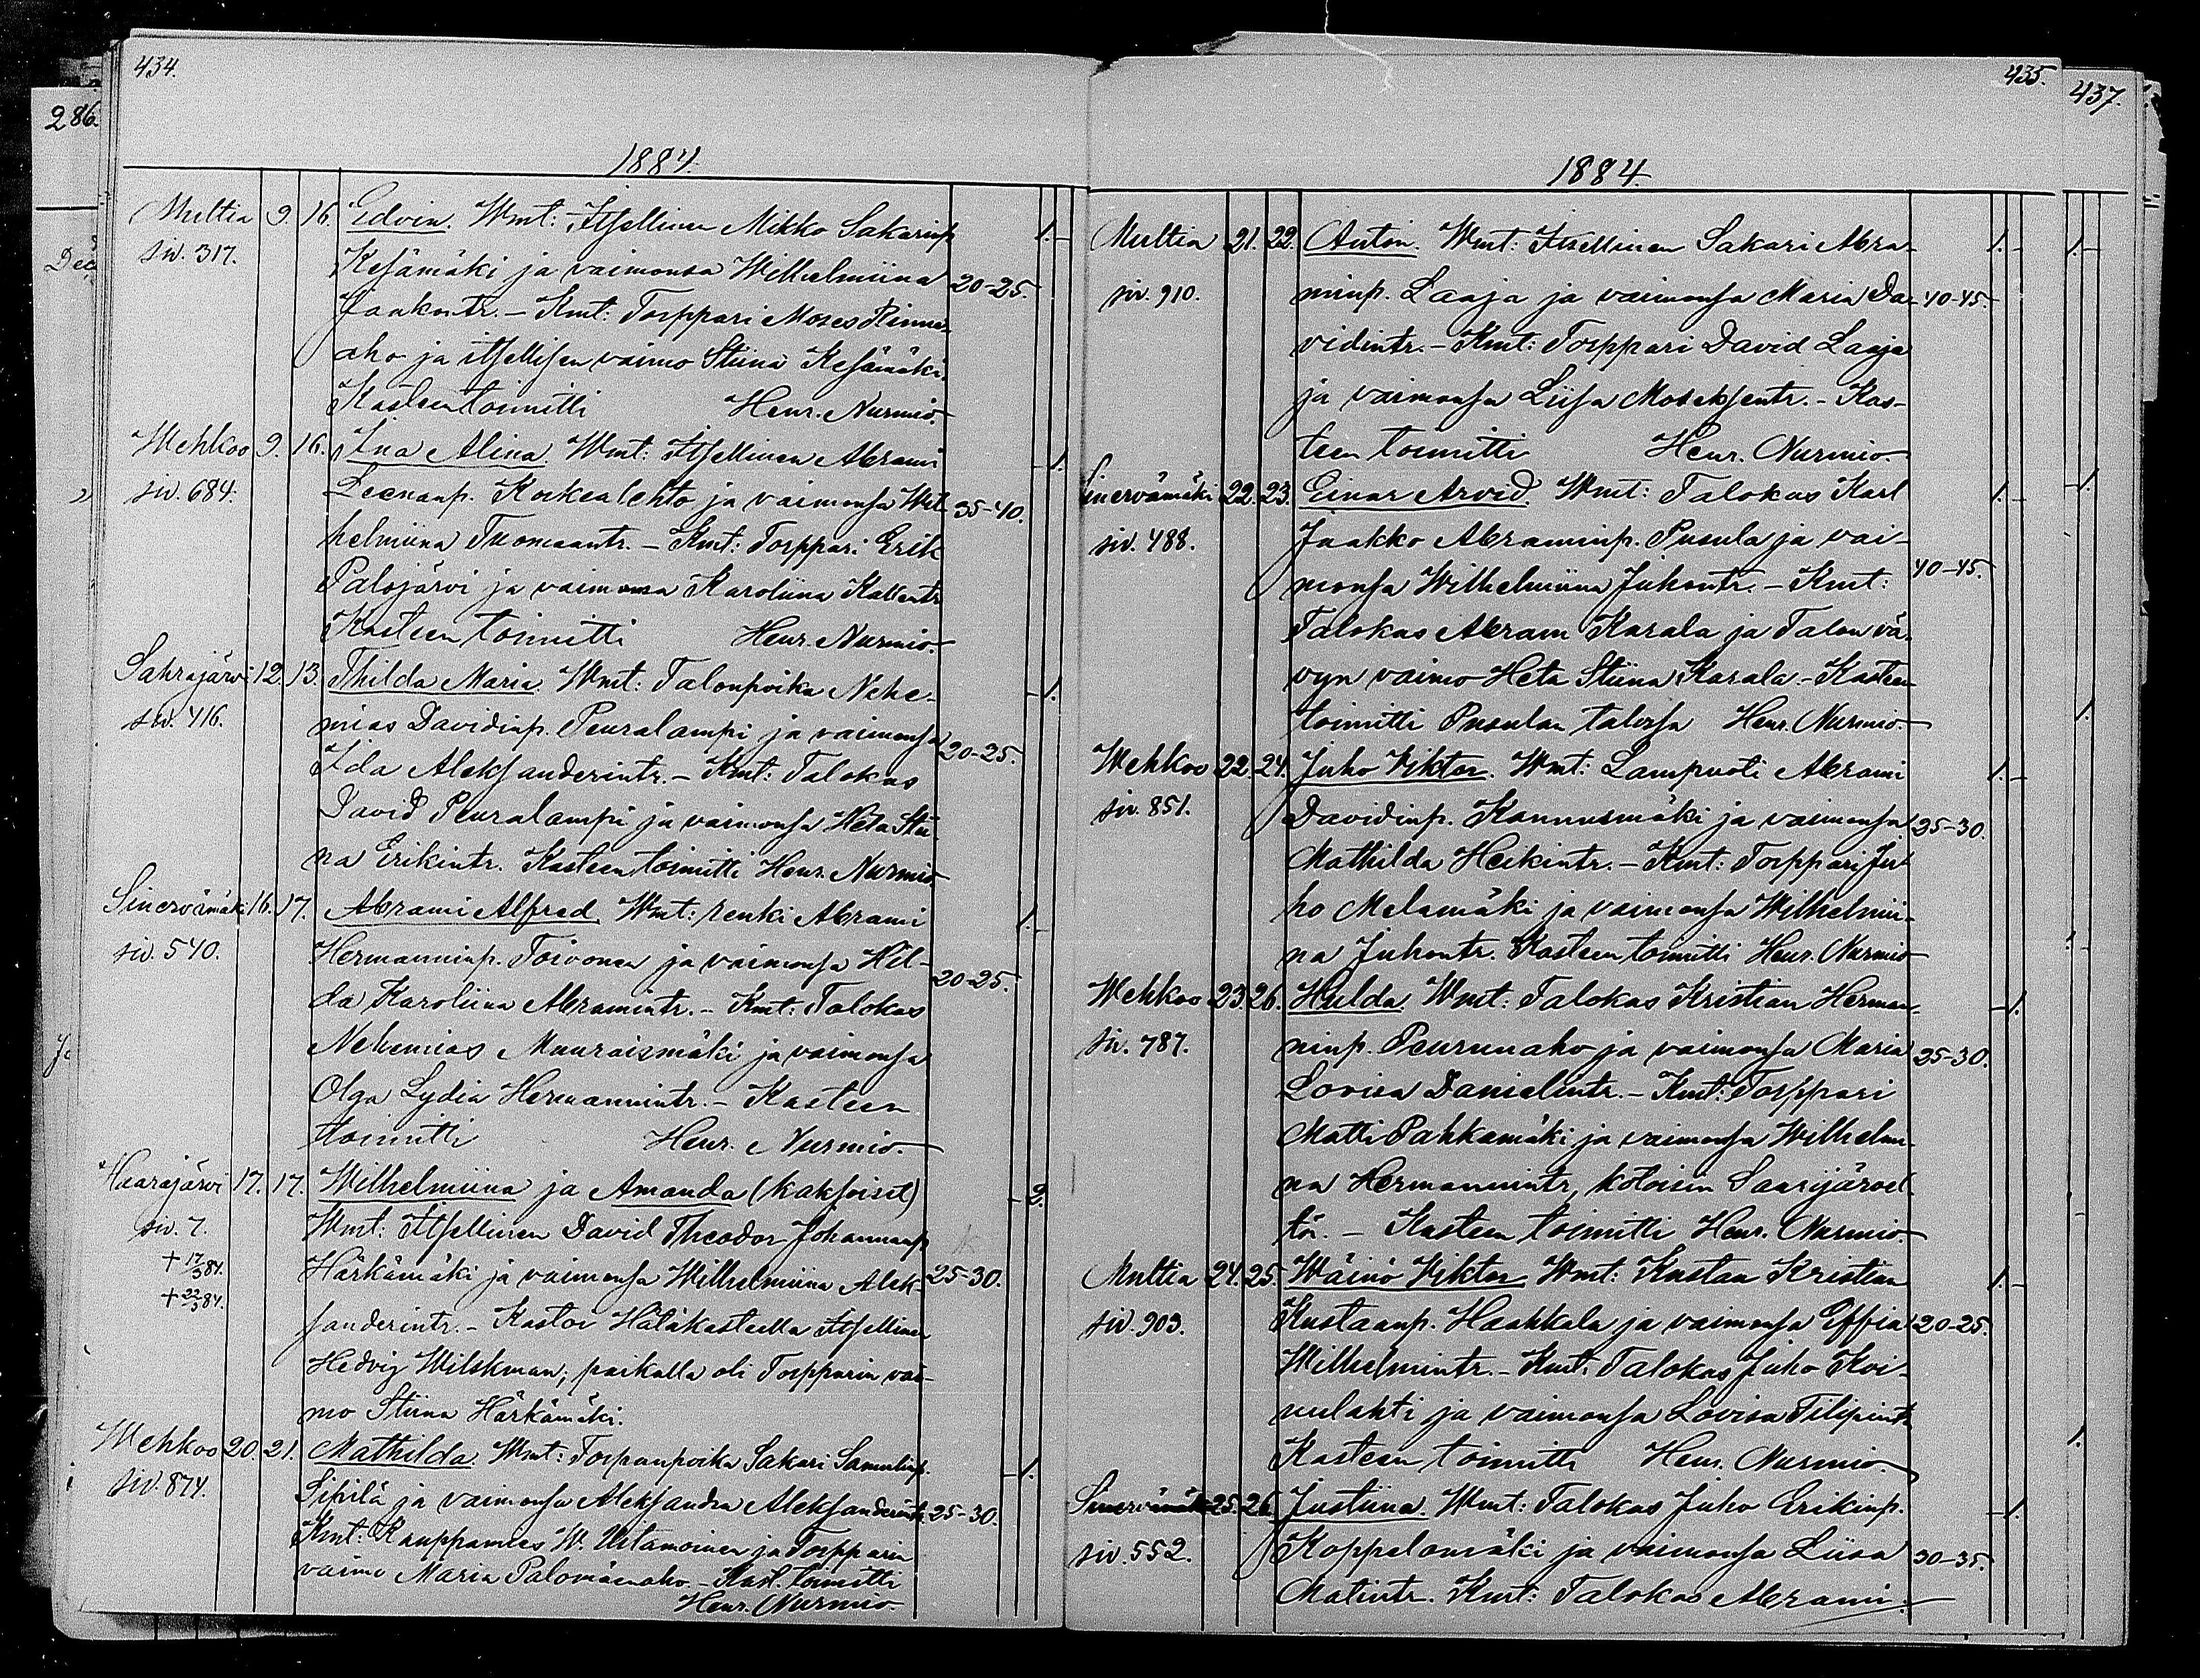 434.
286.
1884.
Multia 9. 16. Edvin. Wmt: Itsellinen Mikko Sakarinp 1.
siv. 317. Kesämäki ja vaimonsa Wilhelmiina 20-25.
Jaakontr. - Kmt: Torppari Moses Rinne-
aho ja itsellisen vaimo Stiina Kesämäki.
Kasteen toimitti Henr. Nurmio.
Wehkoo 9. 16. Ina Alina. Wmt: Itsellinen Abrami 1.
siv. 684. Leenanp. Korkealehto ja vaimonsa Wil- 35-40.
helmiina Tuomaantr. - Kmt: Torppari Erik
Palojärvi ja vaimonsa Karoliina Kallentr
Kasteen toimitti Henr. Nurmio.
Sahrajärvi 12. 13. Thilda Maria. Wmt: Talonpoika Nehe- 1.
siv. 416. mias Davidinp. Peuralampi ja vaimonsa
Ida Aleksanderintr. - Kmt: Talokas 20-25.
David Peuralampi ja vaimonsa Heta Stii-
na Erikintr. Kasteen toimitti Henr. Nurmio.
Sinervämäki 16. 17. Abrami Alfred. Wmt: renki Abrami 1.
siv. 540. Hermanninp. Toivonen ja vaimonsa Hil- 20-25.
da Karoliina Abramintr. - Kmt: Talokas
Nehemias Muuraismäki ja vaimonsa
Olga Lydia Hermannintr. - Kasteen
toimitti Henr. Nurmio.
Haarajärvi 17. 17. Wilhelmiina ja Amanda (kaksoiset) 2.
siv. 7. Wmt: Itsellinen David Theodor Johannanp
+ 17/3 84. Härkämäki ja vaimonsa Wilhelmiina Alek- 25-30.
+ 22/3 84. sanderintr. - Kastoi Hätäkasteella Itsellinen
Hedvig Wilskman, paikalla oli Torpparin vai-
mo Stiina Härkämäki.
Wehkoo 20. 21. Mathilda. Wmt: Torpanpoika Sakari Samulinp. 1.
siv. 874. Sipilä ja vaimonsa Aleksandra Aleksanderintr. 25-30.
Kmt: Kauppamies W. Witamoinen ja Torpparin
vaimo Maria Palomäenaho. - Kast. toimitti
Henr. Nurmio.
435.
437.
1884.
Multia 21. 22. Anton. Wmt: Itsellinen Sakari Abra- 1.
siv. 910. minp. Laaja ja vaimonsa Maria Da- 40-45.
vidintr. - Kmt: Torppari David Laaja
ja vaimonsa Liisa Moseksentr. - Kas-
teen toimitti Henr. Nurmio.
Sinervämäki 22. 23. Einar Arvid. Wmt: Talokas Karl 1.
siv. 488. Jaakko Abraminp. Pusula ja vai-
monsa Wilhelmiina Juhontr. - Kmt: 40-45.
Talokas Abram Karala ja Talon vä-
vyn vaimo Heta Stiina Karala. - Kasteen
toimitti Pusulan talossa Henr. Nurmio.
Wehkoo 22. 24. Juho Viktor. Wmt: Lampuoti Abrami 1.
siv. 851. Davidinp. Kannusmäki ja vaimonsa 25-30.
Mathilda Heikintr. - Kmt: Torppari Ju-
ho Melamäki ja vaimonsa Wilhelmii-
na Juhontr. Kasteen toimitti Henr. Nurmio
Wehkoo 23. 26. Hulda. Wmt: Talokas Kristian Herman- 1.
siv. 787. ninp. Peurunaho ja vaimonsa Maria 25-30.
Lovisa Danielintr. - Kmt: Torppari
Matti Pahkamäki ja vaimonsa Wilhelmii-
na Hermannintr, kotoisin Saarijärvel-
tä. - Kasteen toimitti Henr. Nurmio.
Multia 24. 25. Wäinö Viktor. Wmt: Kustaa Kristian 1.
siv. 903. Kustaanp. Haakkala ja vaimonsa Effia 20-25.
Wilhelmintr. - Kmt: Talokas Juho Koi-
vulahti ja vaimonsa Lovisa Filipintr
Kasteen toimitti Henr. Nurmio.
Sinervämäki 25. 26. Justiina. Wmt: Talokas Juho Erikinp. 1.
siv. 552. Koppelomäki ja vaimonsa Liisa 30-35.
Matintr. Kmt: Talokas Abrami